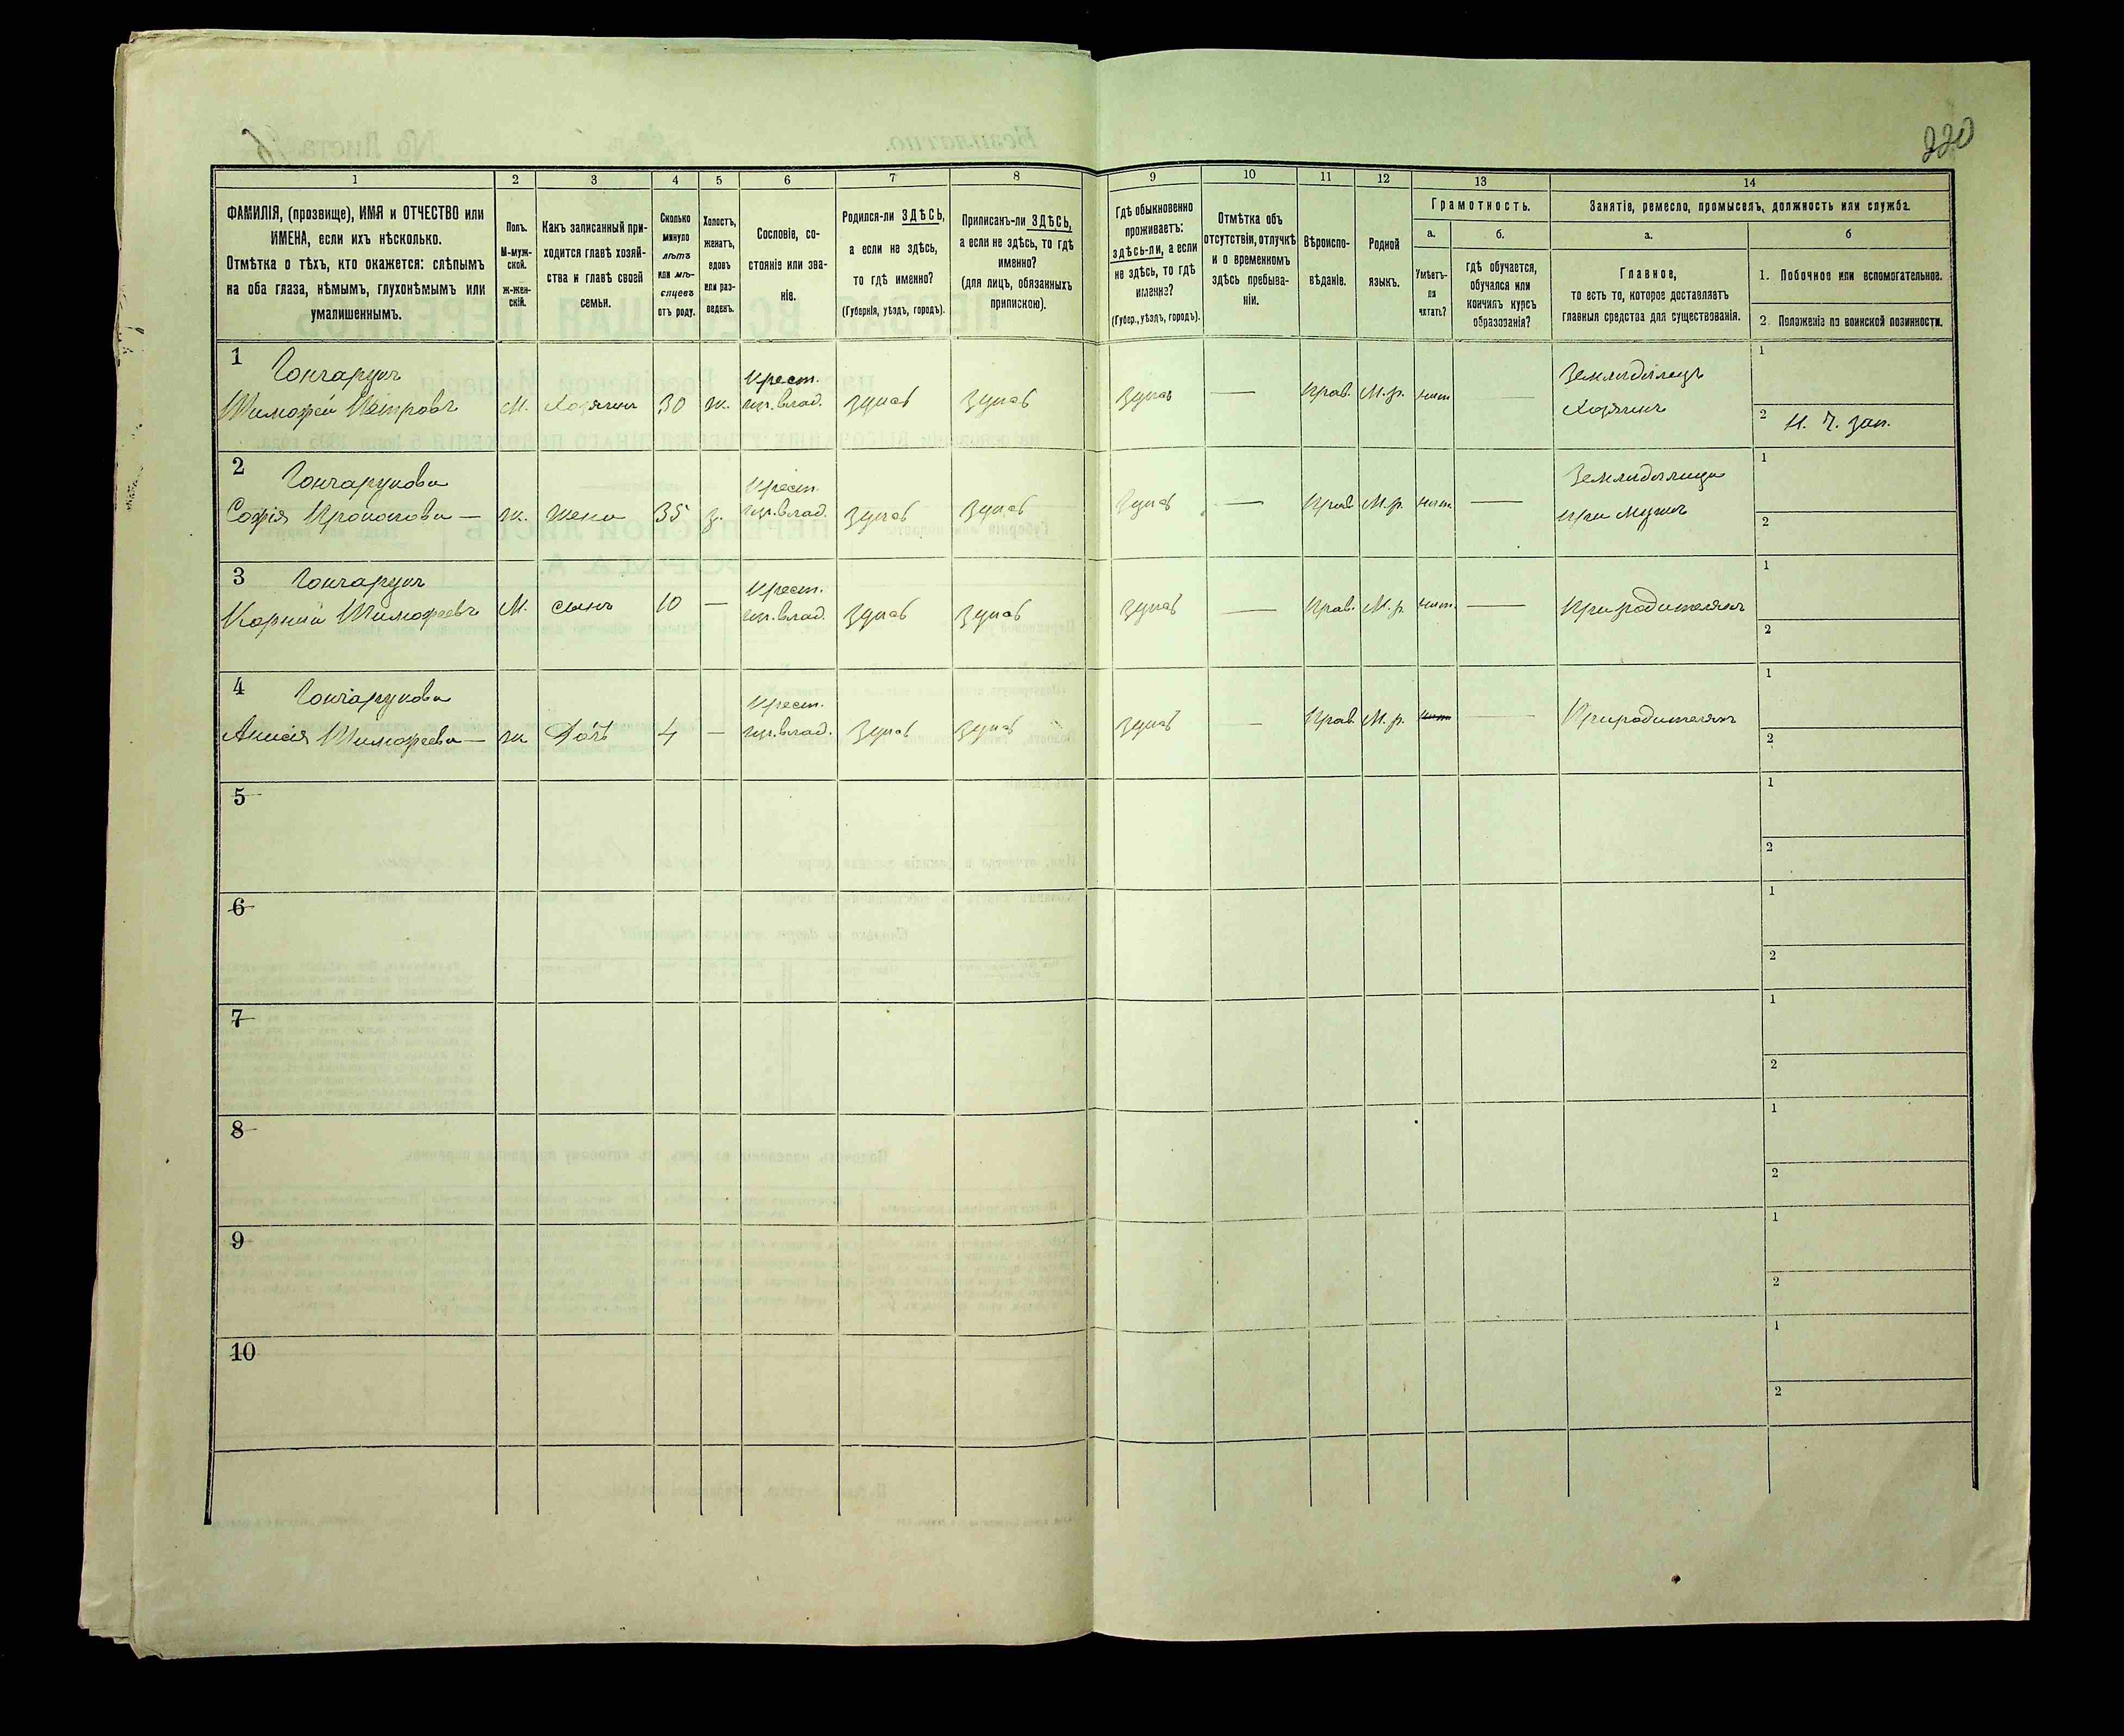 220
1
2
3
4
5
6
7
8
9
10
11
12
13
14
ФАМИЛІЯ, (прозвище), ИМЯ и ОТЧЕСТВО или
ИМЕНА, если ихъ нѣсколько.
Отмѣтка о тѣхъ, кто окажется: слѣпымъ
на оба глаза, нѣмымъ, глухонѣмымъ или
умалишеннымъ.
Полъ.
М-муж-
ской.
ж-жен-
скій.
Какъ записанный при-
ходится главѣ хозяй-
ства и главѣ своей
семьи.
Сколько
минуло
лѣтъ
или мѣ-
сяцевъ
отъ роду.
Холостъ,
женатъ,
вдовъ
или раз-
веденъ.
Сословіе, со-
стояніе или зва-
ніе.
Родился-ли ЗДѢСЬ,
а если не здѣсь,
то гдѣ именно?
(Губернія, уѣздъ, городъ).
Приписанъ-ли ЗДѢСЬ,
а если не здѣсь, то гдѣ
именно?
(для лицъ, обязанныхъ
припискою).
Гдѣ обыкновенно
проживаетъ:
здѣсь-ли, а если
не здѣсь, то гдѣ
именно?
(Губер., уѣздъ, городъ).
Отмѣтка объ
отсутствіи, отлучкѣ
и о временномъ
здѣсь пребыва-
ніи.
Вѣроиспо-
вѣданіе.
Родной
языкъ.
Грамотность.
а.
Умѣетъ-
ли
читать?
б.
гдѣ обучается,
обучался или
кончилъ курсъ
образованія?
Занятіе, ремесло, промыселъ, должность или служба.
а.
Главное,
то есть то, которое доставляетъ
главныя средства для существованія.
б
1. Побочное или вспомогательное.
2. Положеніе по воинской повинности.
1 Гончарукъ
Тимофей Петровъ М. Хозяинъ 30 ж. Крест. гос. влад. здѣсь здѣсь здѣсь — Прав. М.р. нѣт — Земледѣлецъ
Хозяинъ
1
2 Н. Ч. зап.
2 Гончарукова
Софія Прокопова — ж. жена 35 з. Крест. влад. здѣсь здѣсь здѣсь — Прав. М.р. нѣт — Земледѣлица
при мужѣ
1
2
3 Гончарукъ
Корній Тимофеевъ М. сынъ 10 — Крест. влад. здѣсь здѣсь здѣсь — Прав. М.р. нѣт. — При родителяхъ
1
2
4 Гончарукова
Анисія Тимофеева — ж Дочь 4 — Крест. влад. здѣсь здѣсь здѣсь — Прав. М.р. нѣт — При родителяхъ
1
2
5
1
2
6
1
2
7
1
2
8
1
2
9
1
2
10
1
2